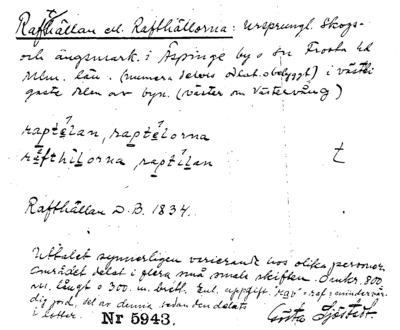 Rafthällan el. Rafthällorna: Ursprungl. Skogs-
och ängsmark i Äspinge by o sn Frosta hd
Mlm. län. (numera delvis odlat. obebyggt) i västli
gaste delen av byn. (väster om Västervång)
raptęlan, raptęlorna
ræfthilorna raptilan t
Rafthällan D.B. 1834.
Uttalet synnerligen varierande hos olika personer.
Området delat i flera små smala skiften. Omkr. 800
m. långt o 300 m. brett. Enl. uppgift "rav" = raf = mindervär-
dig jord, del av denna sedan den delats
i lotter. Gösta Sjöstedt.
Nr 5943.